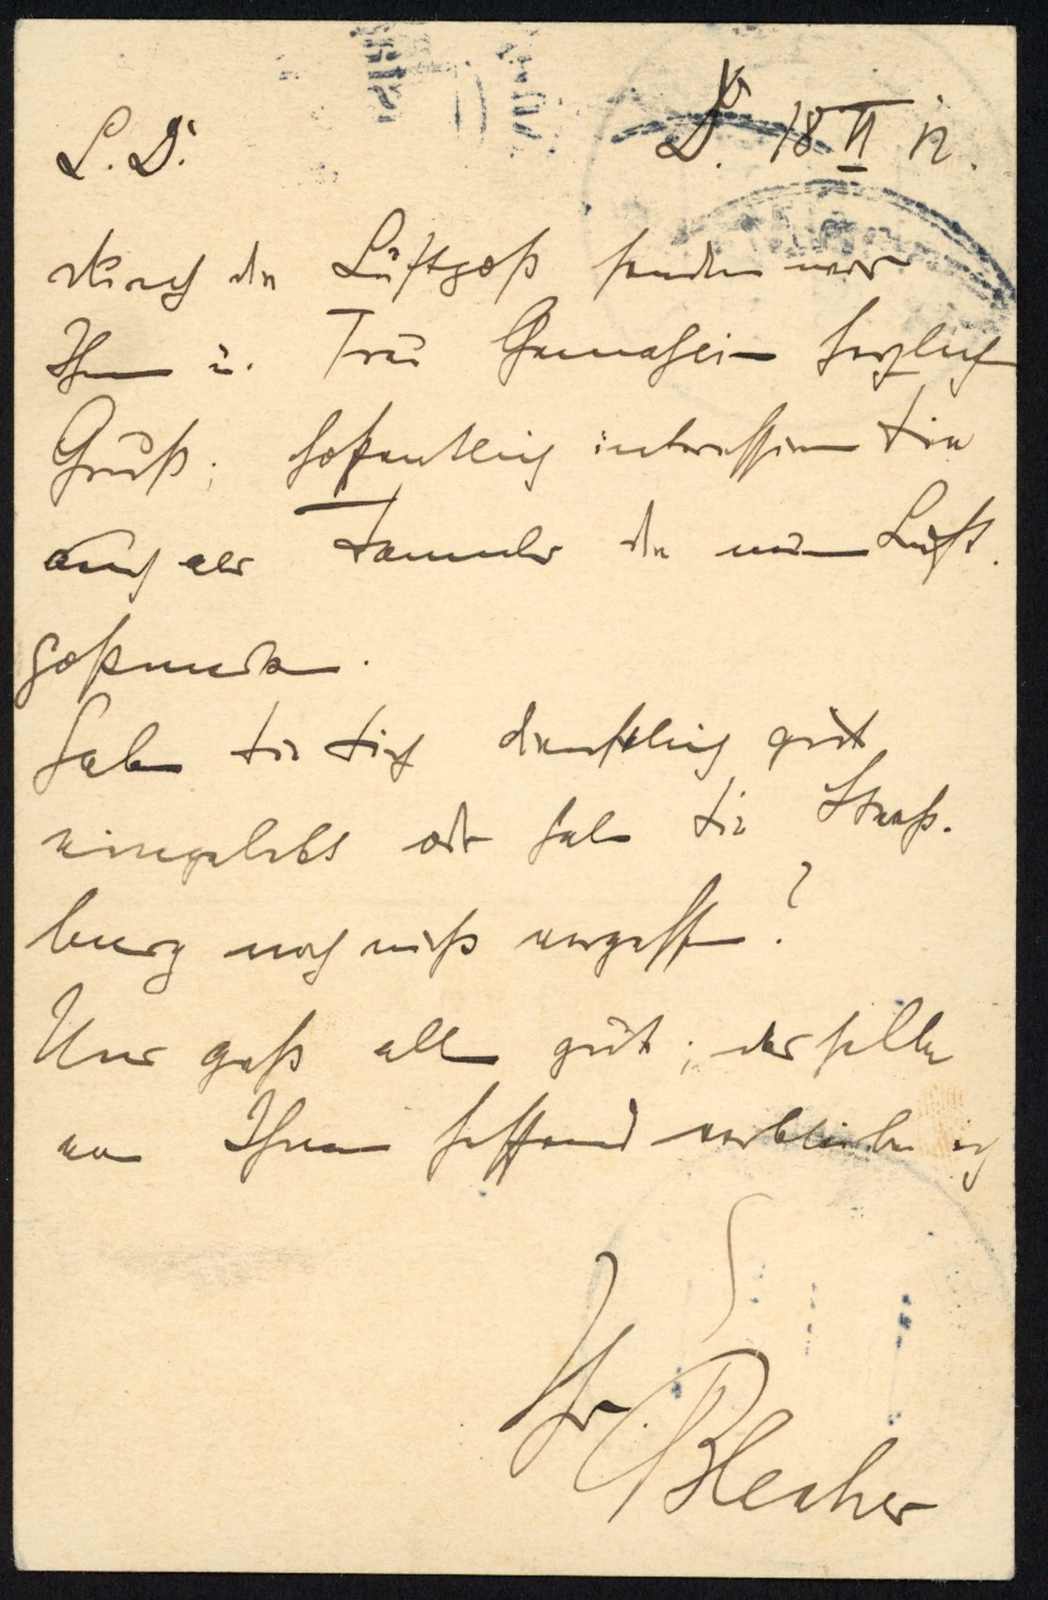 L. D. D. 18 VI 12.
durch die Luftpost senden wir
Ihnen u. Frau Gemahlin herzlich
Gruß; hoffentlich interessieren Sie
auch als Sammler die neuen Luft-
postmarken.
Haben Sie sich dienstlich gut
eingelebt oder haben Sie Straß-
burg noch nicht vergessen?
Uns geht alles gut; dasselbe
von Ihnen hoffend verbleibe ich
Ihr
Blecher